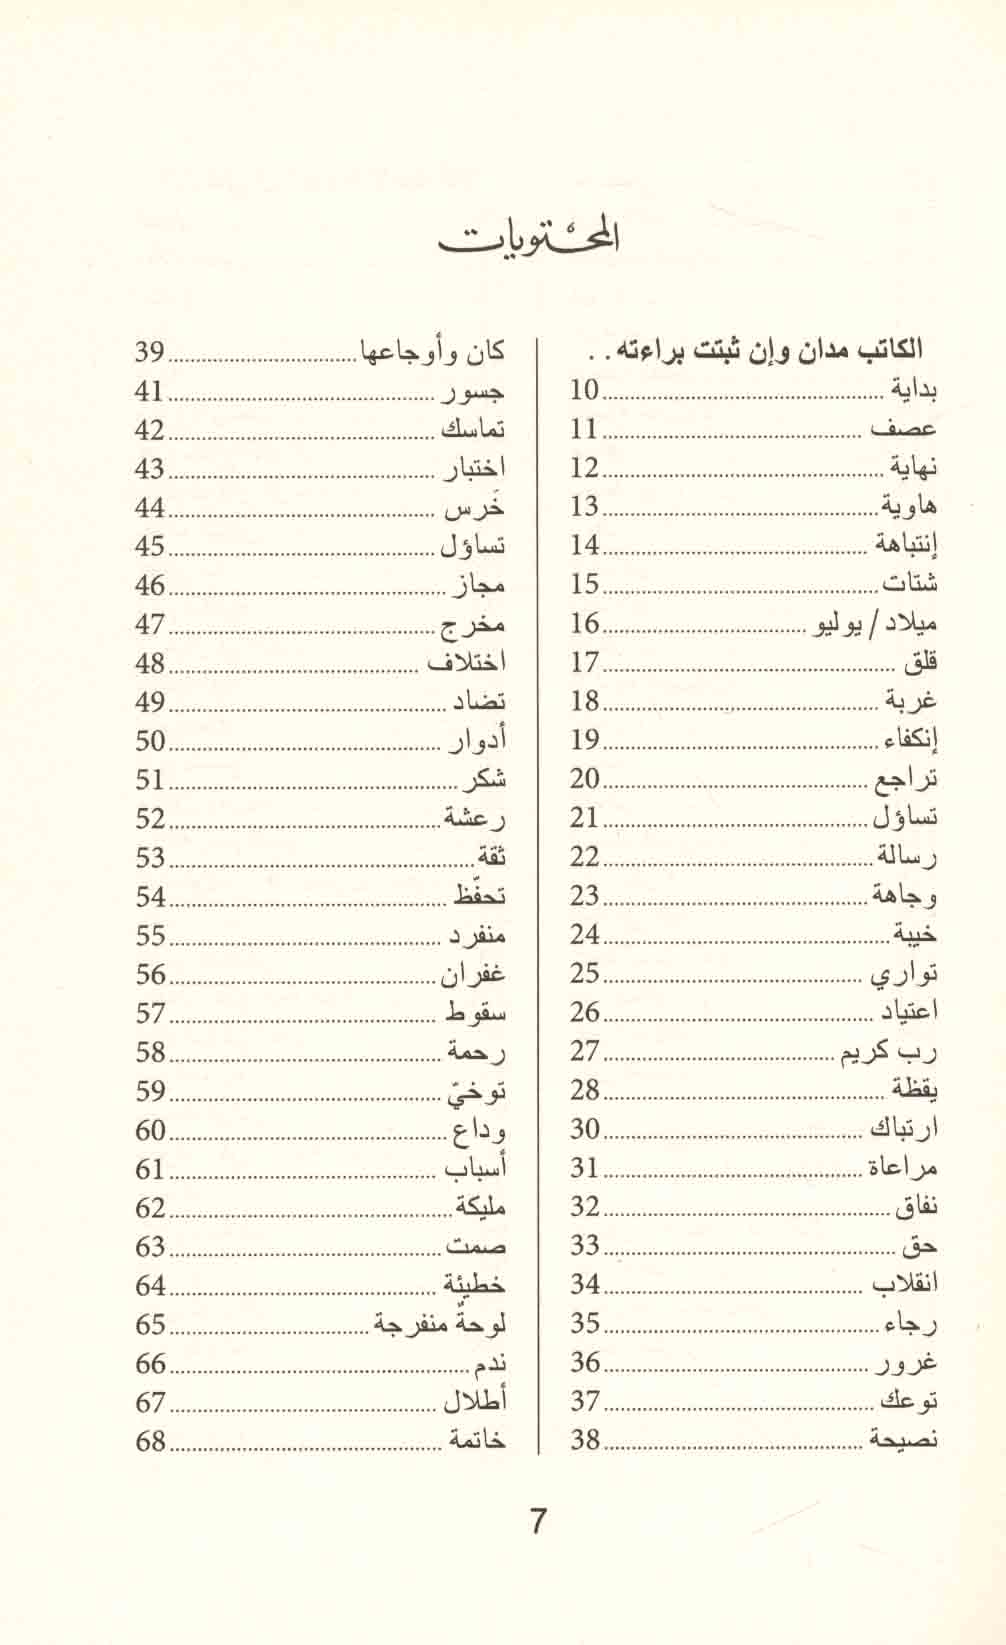 المحتويات
الكاتب مدان وإن ثبتت براءته . .
بداية ........ 10
عصف ........ 11
نهاية ........ 12
هاوية ........ 13
إنتباهة ........ 14
شتات ........ 15
ميلاد / يوليو ........ 16
قلق ........ 17
غربة ........ 18
إنكفاء ........ 19
تراجع ........ 20
تساؤل ........ 21
رسالة ........ 22
وجاهة ........ 23
خيبة ........ 24
تواري ........ 25
اعتياد ........ 26
رب كريم ........ 27
يقظة ........ 28
ارتباك ........ 30
مراعاة ........ 31
نفاق ........ 32
حق ........ 33
انقلاب ........ 34
رجاء ........ 35
غرور ........ 36
توعك ........ 37
نصيحة ........ 38
كان وأوجاعها ........ 39
جسور ........ 41
تماسك ........ 42
اختبار ........ 43
خَرس ........ 44
تساؤل ........ 45
مجاز ........ 46
مخرج ........ 47
اختلاف ........ 48
تضاد ........ 49
أدوار ........ 50
شكر ........ 51
رعشة ........ 52
ثقة ........ 53
تحفّظ ........ 54
منفرد ........ 55
غفران ........ 56
سقوط ........ 57
رحمة ........ 58
توخيّ ........ 59
وداع ........ 60
أسباب ........ 61
مليكة ........ 62
صمت ........ 63
خطيئة ........ 64
لوحةٌ منفرجة ........ 65
ندم ........ 66
أطلال ........ 67
خاتمة ........ 68
7